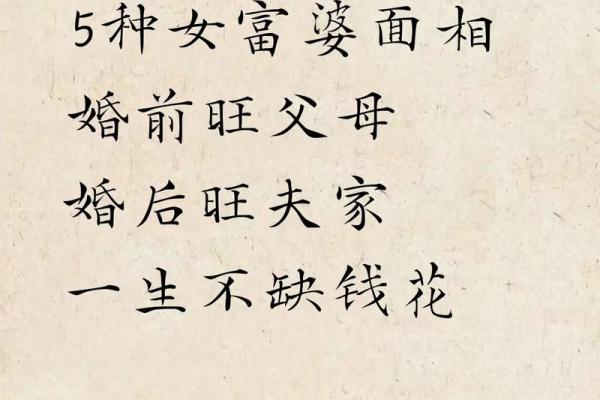 5种女富婆面相
婚前旺父母
婚后旺夫家
一生不缺钱花